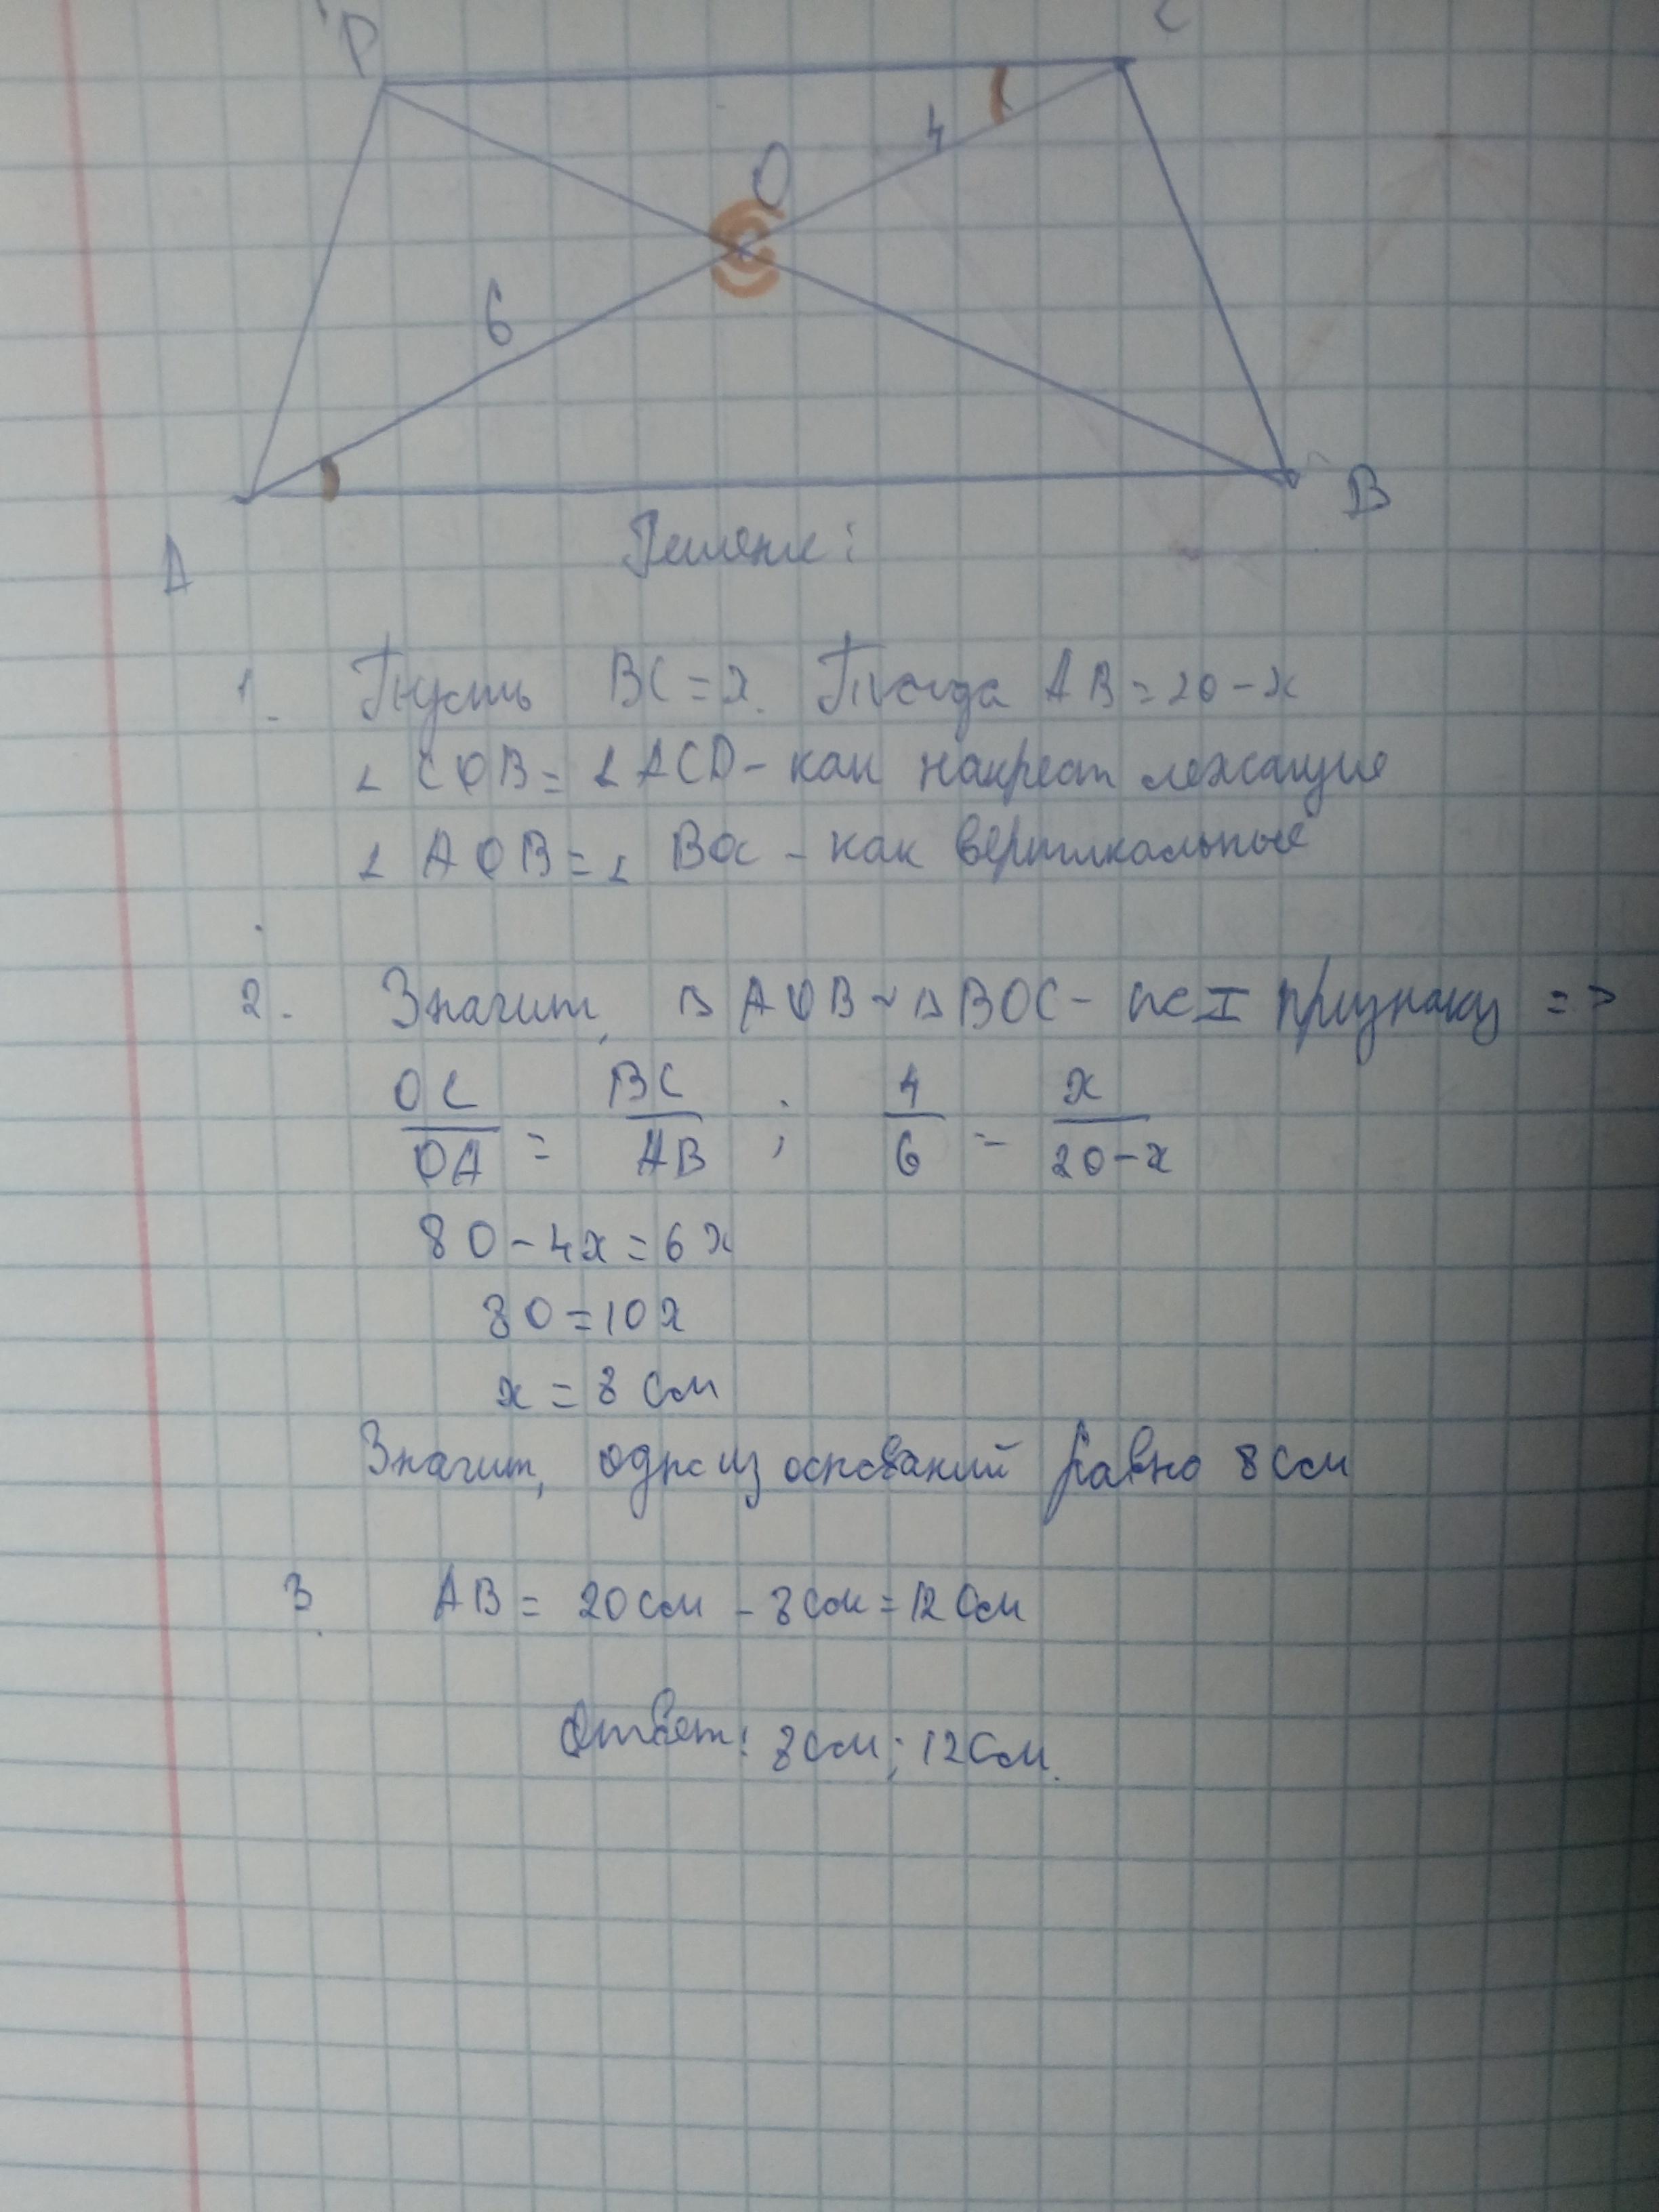 P C
O 4
6
A B
Решение:
1. Пусть BC = x. Тогда AB = 20 - x
∠ COB = ∠ ACD - как накрест лежащие
∠ AOB = ∠ BOC - как вертикальные
2. Значит, △ AOB ~ △ BOC - по I признаку =>
OC/OA = BC/AB ; 4/6 = x/20-x
80 - 4x = 6x
80 = 10x
x = 8 см
Значит, одно из оснований равно 8 см
3. AB = 20 см - 8 см = 12 см
Ответ: 8 см; 12 см.